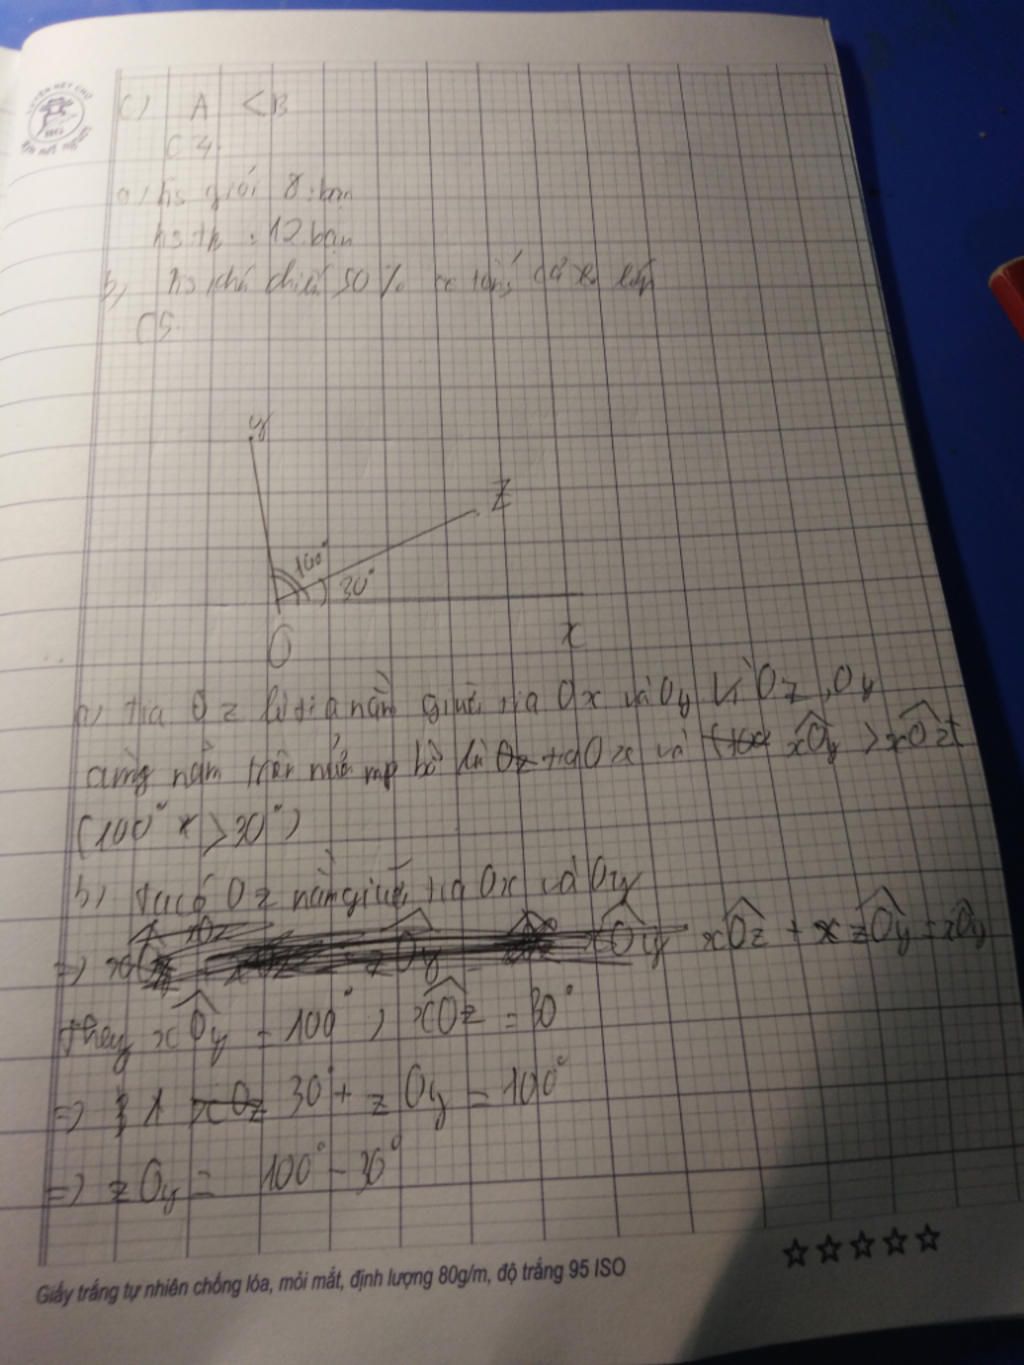 c) A < B
C4
a) hs giỏi 8 bạn
hs tb : 12 bạn
b) hs khá chiếm 50% số cả lớp
C5
y
z
100°
30°
O
x
a) tia Oz là tia nằm giữa tia Ox và Oy vì Oz, Oy
cùng nằm trên nửa mp bờ là tia Ox và xOy > xOz
(100° > 30°)
b) Vì có Oz nằm giữa tia Ox và Oy
=) xOz + zOy = xOy
thay xOy = 100° ; xOz = 30°
=) 30° + zOy = 100°
=) zOy = 100° - 30°
Giấy trắng tự nhiên chống lóa, mỏi mắt, định lượng 80g/m, độ trắng 95 ISO